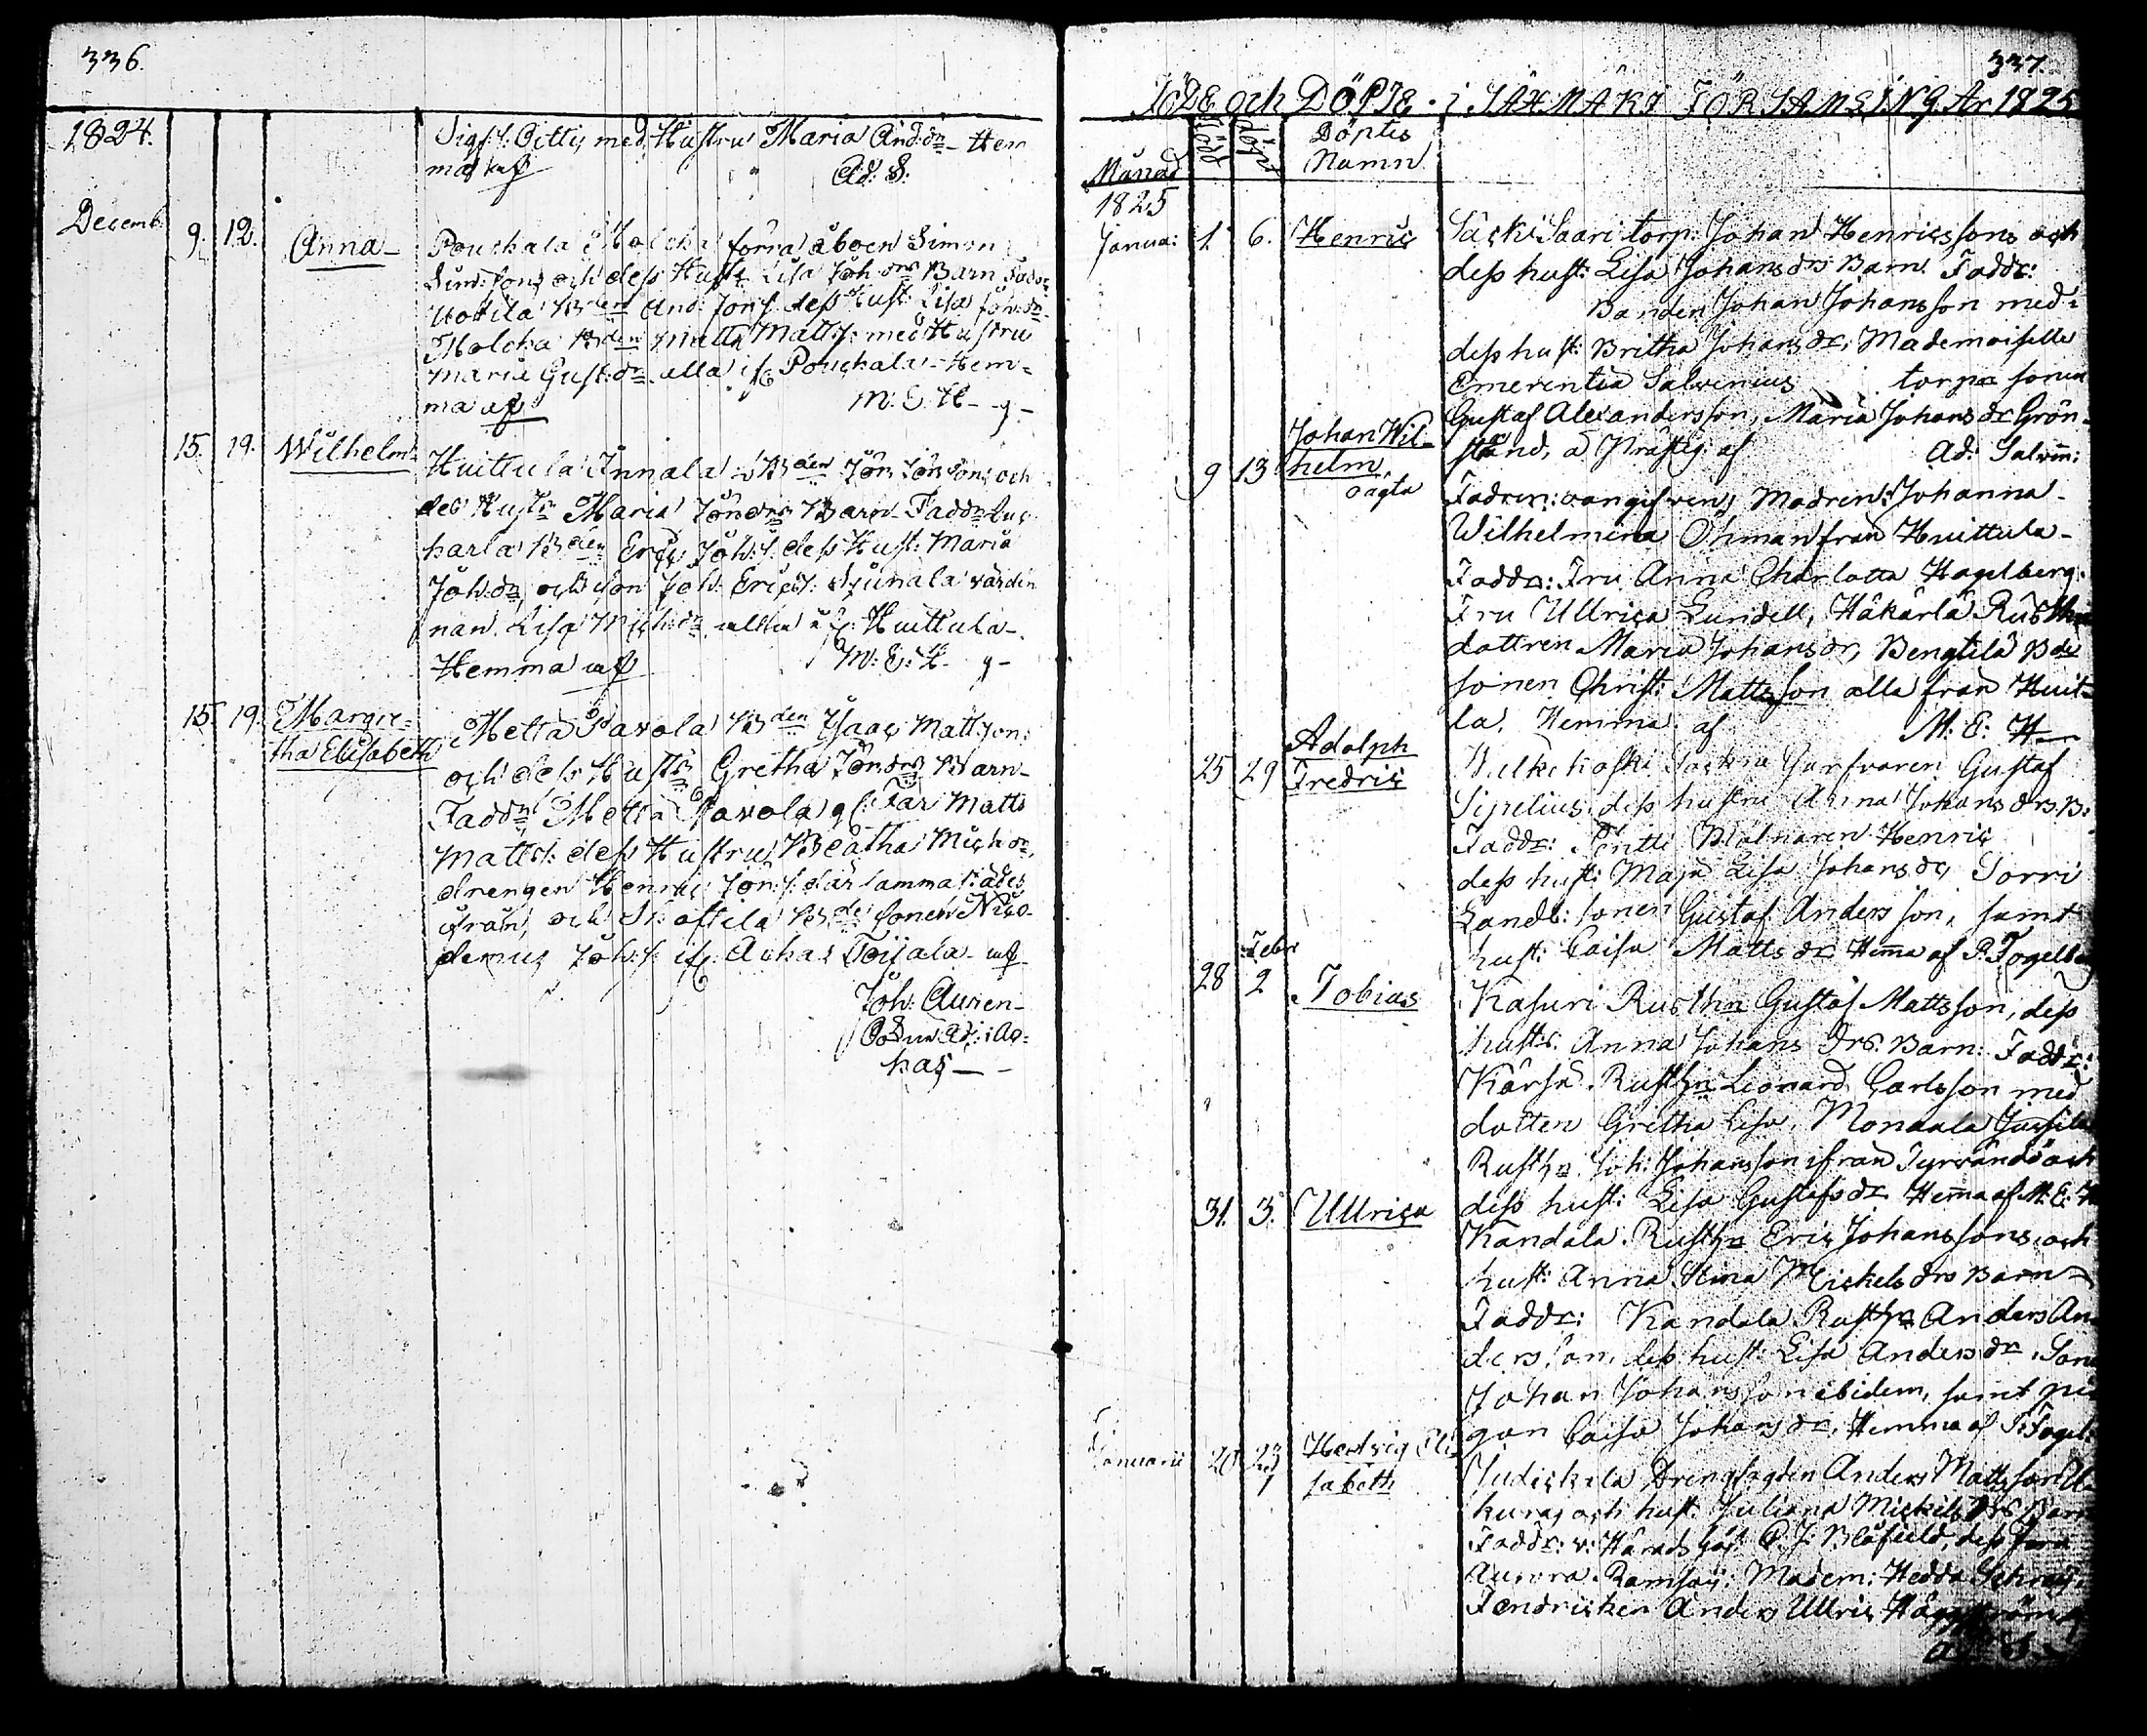 336.
1824.
Sigf:s: Pitti, med Hustru Maria And:dr Hem
ma af Ad: S:
Decemb. 9. 12. Anna
Pouchala Molcka förra åboen Simon
Sim:sons och dess Hustr Lisa Joh:drs Barn Faddr
Uotila Bden And: Jon:s. dess Hust: Lisa Joh:dr
Molcka Bden Matts Matts:s: med Hustru
Maria Gust:dr alla if: Pouchala Hem=
ma af M: E: H-g-
15. 19. Wilhelm
Huittula Innala Bden Jör: Jör:sons och
des Hustr Maria Jöns:drs Barn Faddr
karla Bden Eric Joh:s. dess Hust: Maria
Joh:dr, och son Joh: Erics:s: värdin
nan Lisa Mich:dr alla if: Huittula
Hemma af M: E: H-g-
15. 19. Margre=
tha Elisabeth
Metta Pavola Bden Isaac Matt:son:
och dess Hustr Gretha Jöns:drs Barn
Faddr Metta Pavola gl: Far Matts
Matts:s: dess Hustru Beatha Mich:dr,
drengen Henric Jon:s. där samma städes
ifrån, och Bde sonen Nico-
demus Joh:s: if: Achas Toijala af
Joh: Auren-
Ad: i Ac=
kas
337.
FÖDE och DÖPTE i SÄXMÄKI FÖRSAMLING År 1825
Månad Född döpt Döptes
Namn
1825
Janua: 1. 6. Henric
Säcki Saari torp: Johan Henricssons och
dess hust: Lisa Johans drs Barn. Faddr:
Bonden Johan Johansson med
dess hust: Britha Johans dr, Mademoiselle
Emerentia Salvenius torpa sonen
Gustaf Alexandersson, Maria Johans dr Grön-
strand, a Prästg: af Ad: Salvin:
9 13 Johan Wil-
helm
oägta
Fadren: oangifven, Modren: Johanna
Wilhelmina Öhman från Huittula
Faddr: Fru Anna Charlotta Hagelberg.
Fru Ullrica Lundell, Håkarla Rusth
dottren Maria Johans dr, Bengtilä Bde
sonen Christ: Mattsson alla från Huit-
la, Hemma af M: E: H
25 29 Adolph
Fredric
Garfvaren Gustaf
Sipelius, dess hustru Anna Johans drs B:
Faddr: Pentti Mölnaren Henric
dess hust: Maja Lisa Johans dr, Sorri
Landb: sonen Gustaf Andersson, samt
hust: Caisa Matts dr: Hem̄a af P. Fogelbe
28 Febr 2 Tobias
Kasuri Rusthn Gustaf Mattsson, dess
hustr: Anna Johans drs. Barn: Faddr:
Kärsä Rusthn Leonard Carlsson med
dotten Gretha Lisa, Monaala Jussila
Rusthn Joh: Johansson ifrån Tyrvändö och
dess hust: Lisa Gustafs dr Hem̄a af M. E. H
31. 3. Ullrica
Kandala Rusthn Eric Johanssons och
hust: Anna Stina Mickels drs Barn
Faddr: Kandala Rusthn Anders An
dersson, dess hust: Lisa Anders dr, Son
Johan Johansson ibidem, samt pi
gan Caisa Johans dr, Hemma af P: Fogel:
Januarii 20 23 Hedvig Eli
sabeth
Judickala Drengfogden Anders Mattsson
och hust: Juliana Mickels drs Barn
Faddr: v: Häradshöf: P. J: Blåfield, dess fru
Aurora Ramsay; Madem: Hedda
Fendricken Anders Ullric Häggström